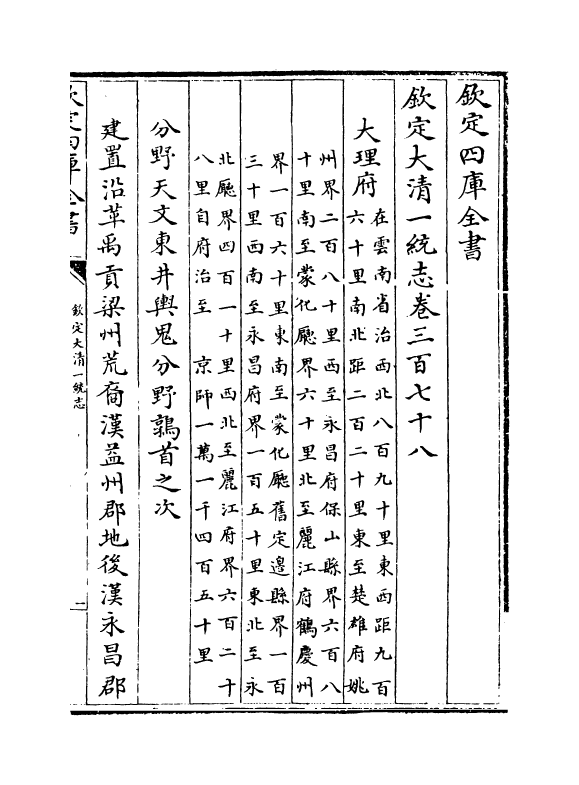 欽定四庫全書
欽定大清一統志卷三百七十八
大理府
在雲南省治西北八百九十里東西距九百
六十里南北距二百二十里東至楚雄府姚
州界二百八十里西至永昌府保山縣界六百八
十里南至蒙化廳界六十里北至麗江府鶴慶州
界一百六十里東南至蒙化廳舊定邊縣界一百
三十里西南至永昌府界一百五十里東北至永
北廳界四百一十里西北至麗江府界六百二十
八里自府治至 京師一萬一千四百五十里
分野天文東井輿鬼分野鶉首之次
建置沿革禹貢梁州荒裔漢益州郡地後漢永昌郡
欽定四庫全書
欽定大清一統志